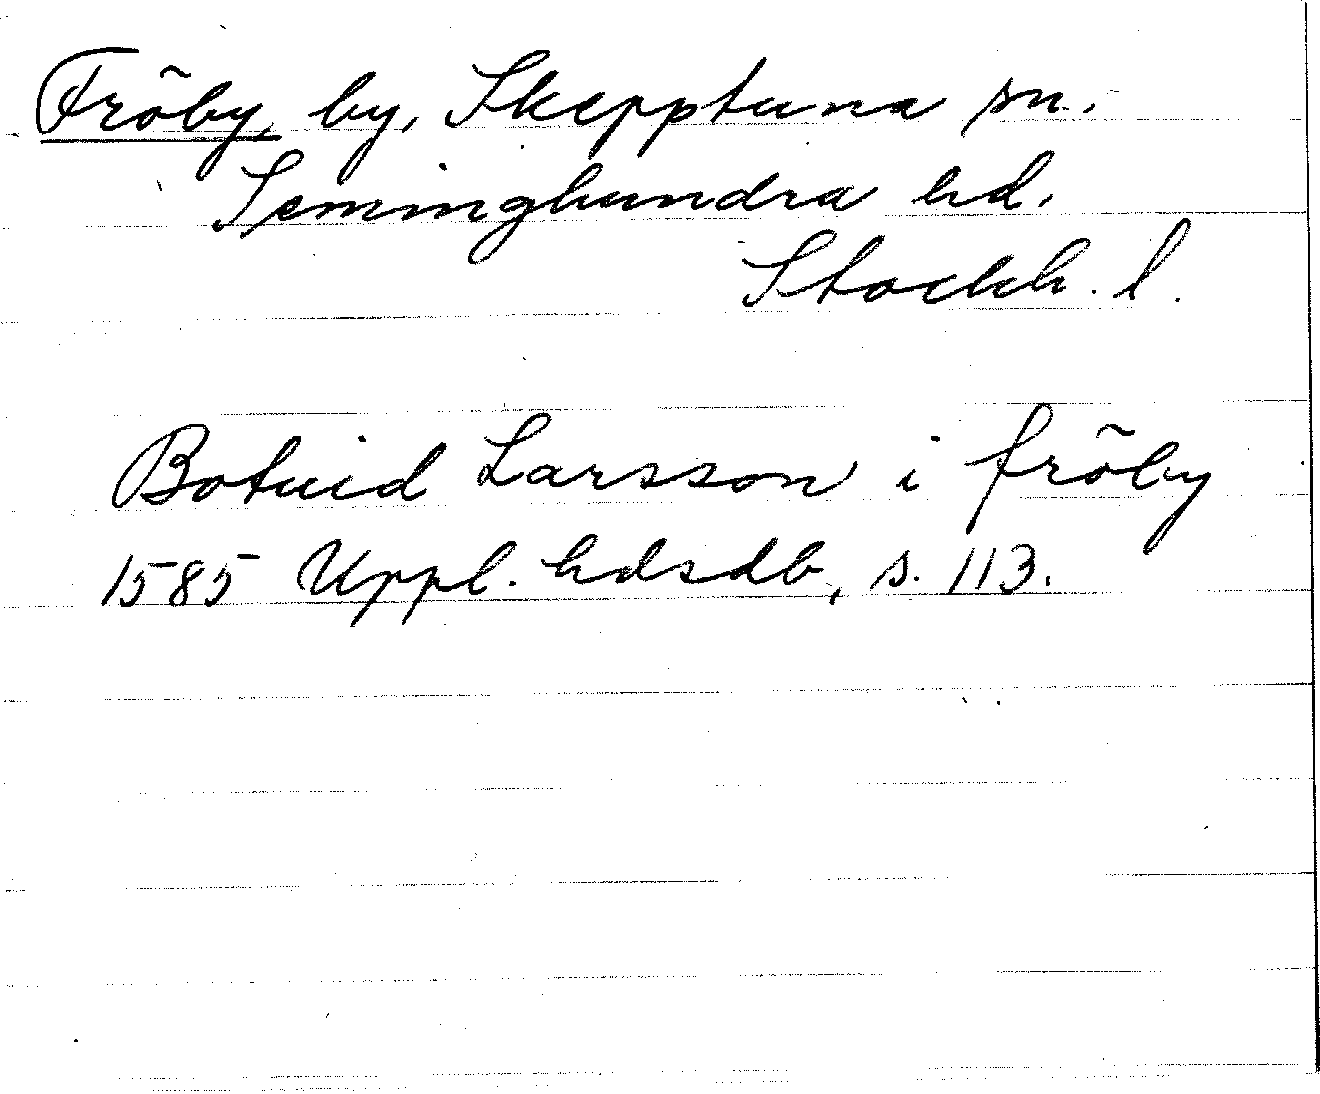 Fröby, by, Skepptuna sn.
Seminghundra hd.
Stockh. l.
Botuid Larsson i fröby
1585 Uppl. hdsdb, s. 113.